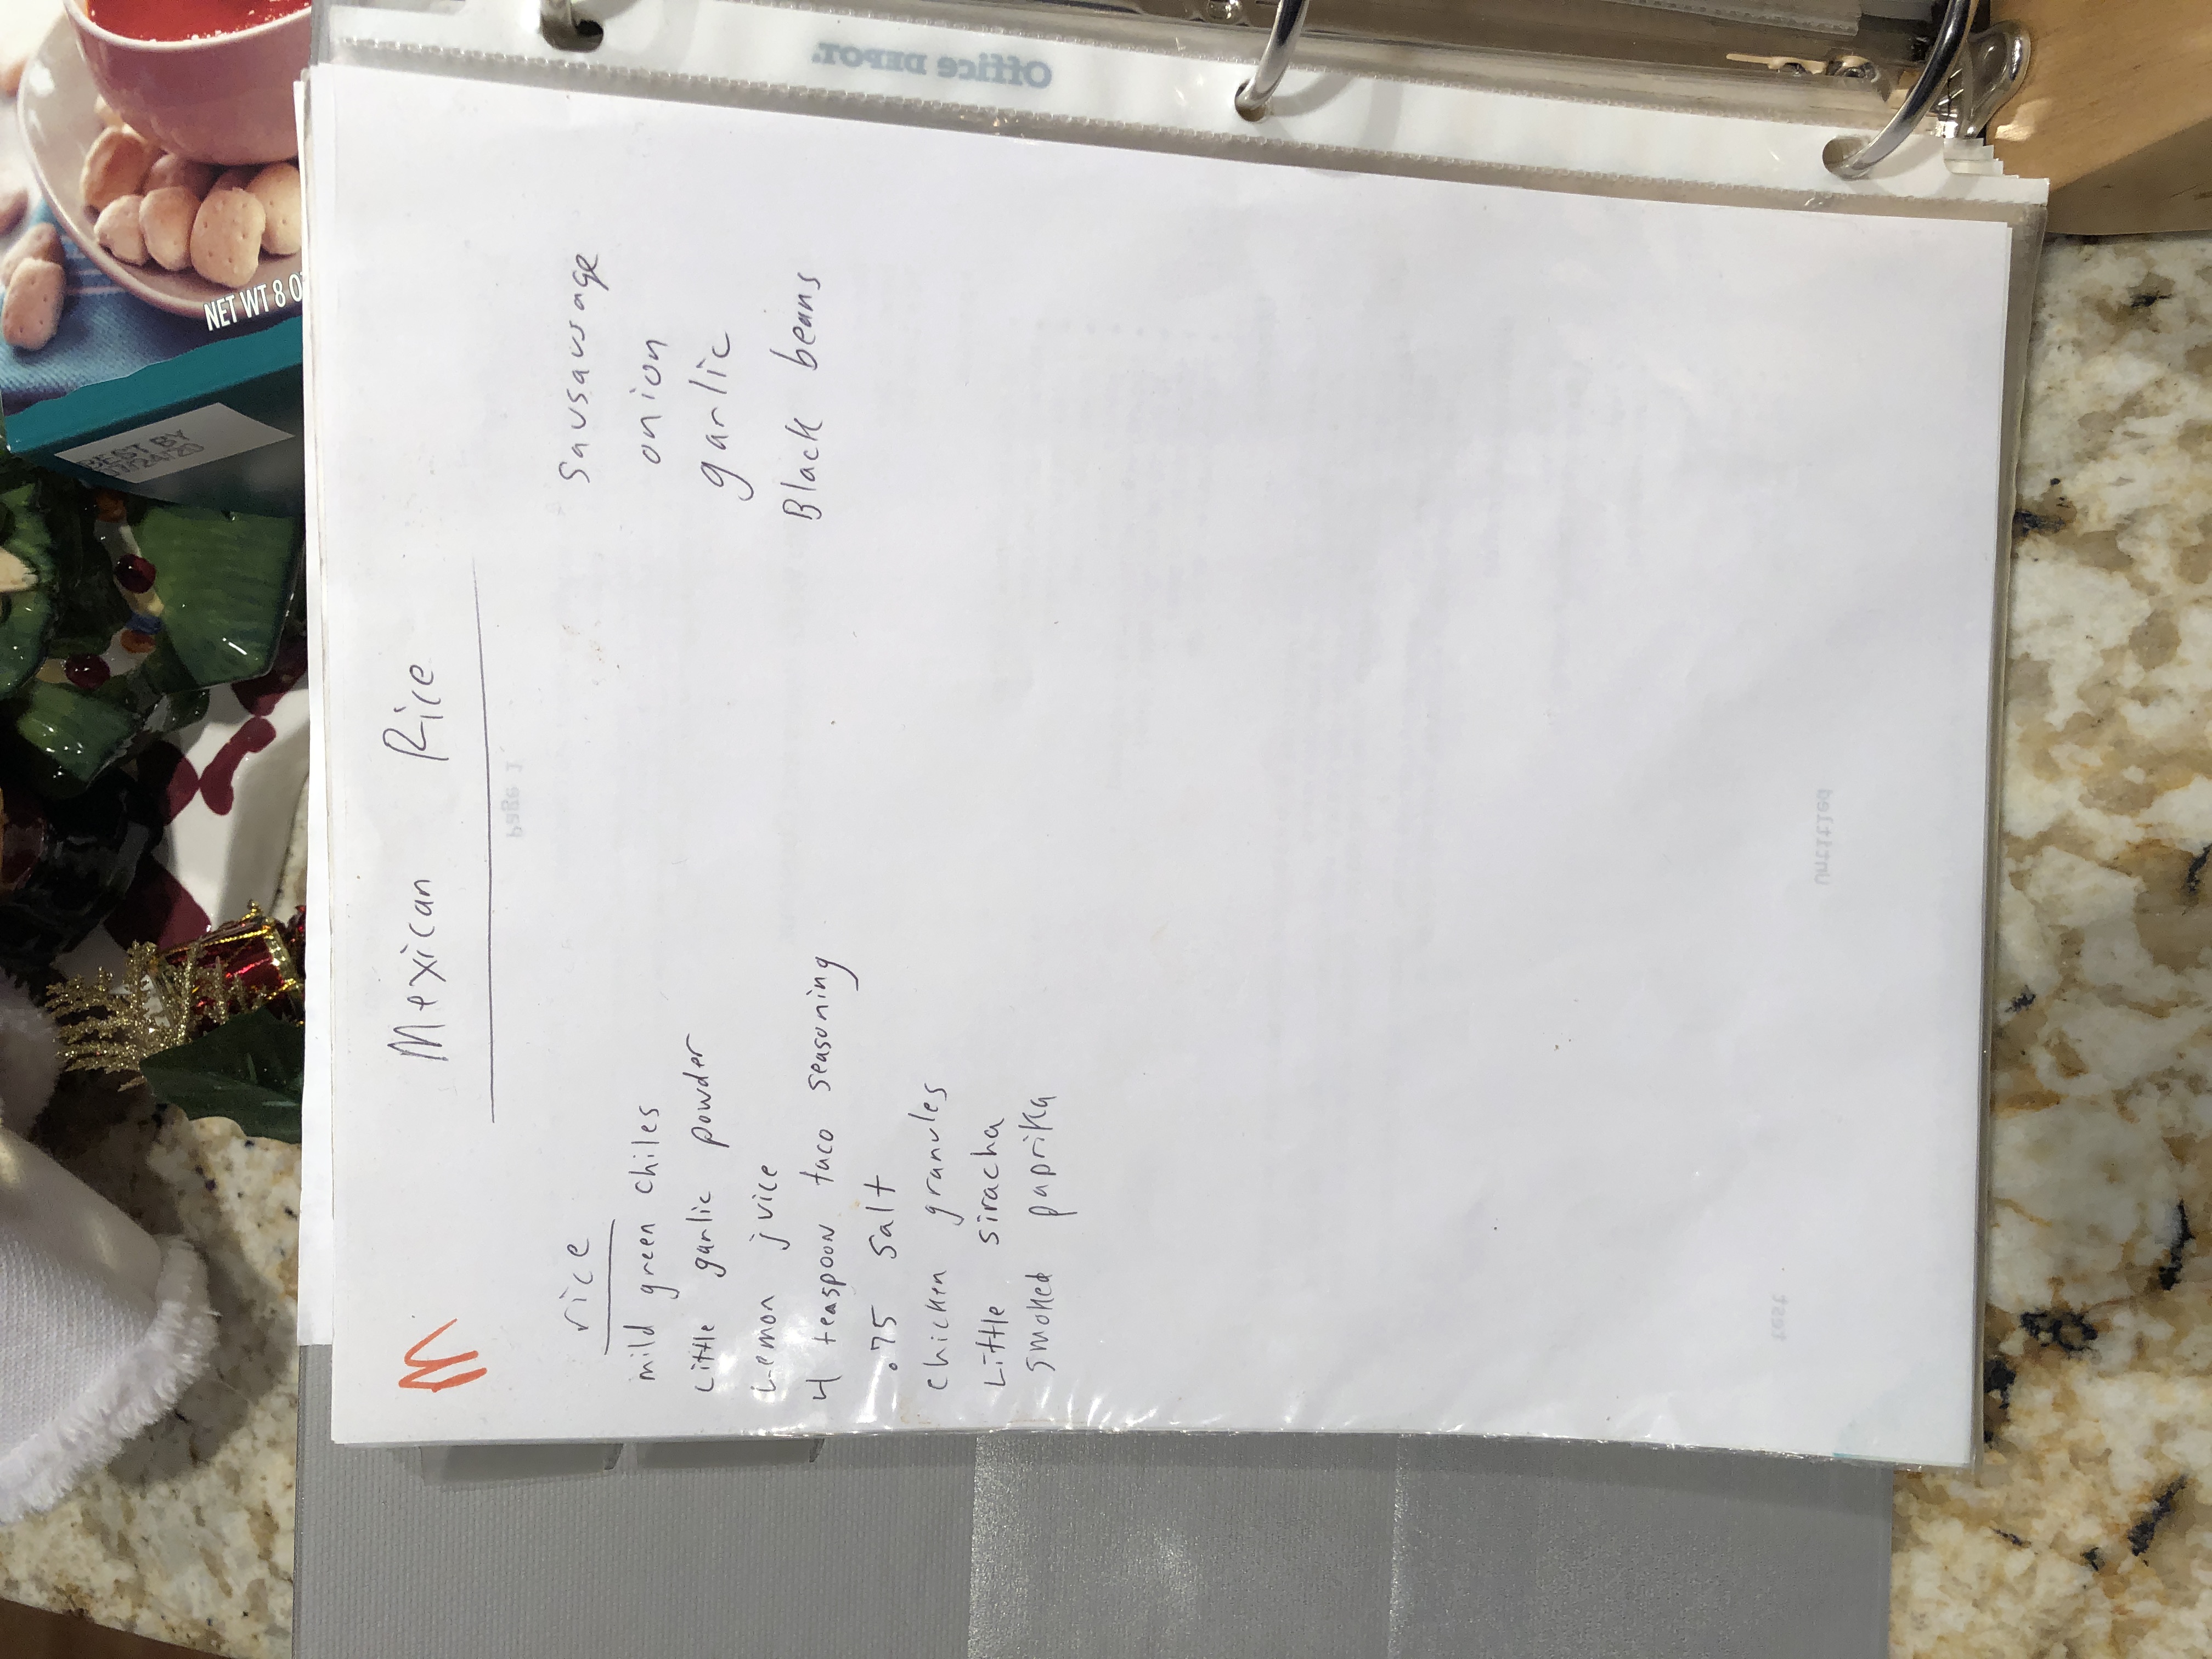 Mexican Rice
rice
mild green chiles
Little garlic powder
Lemon juice
4 teaspoon taco seasoning
.75 salt
chicken granules
Little siracha
smoked paprika
Sausausage
onion
garlic
Black beans
Page 1
Untitled
test
Office DEPOT.
NET WT 8 O
BEST BY